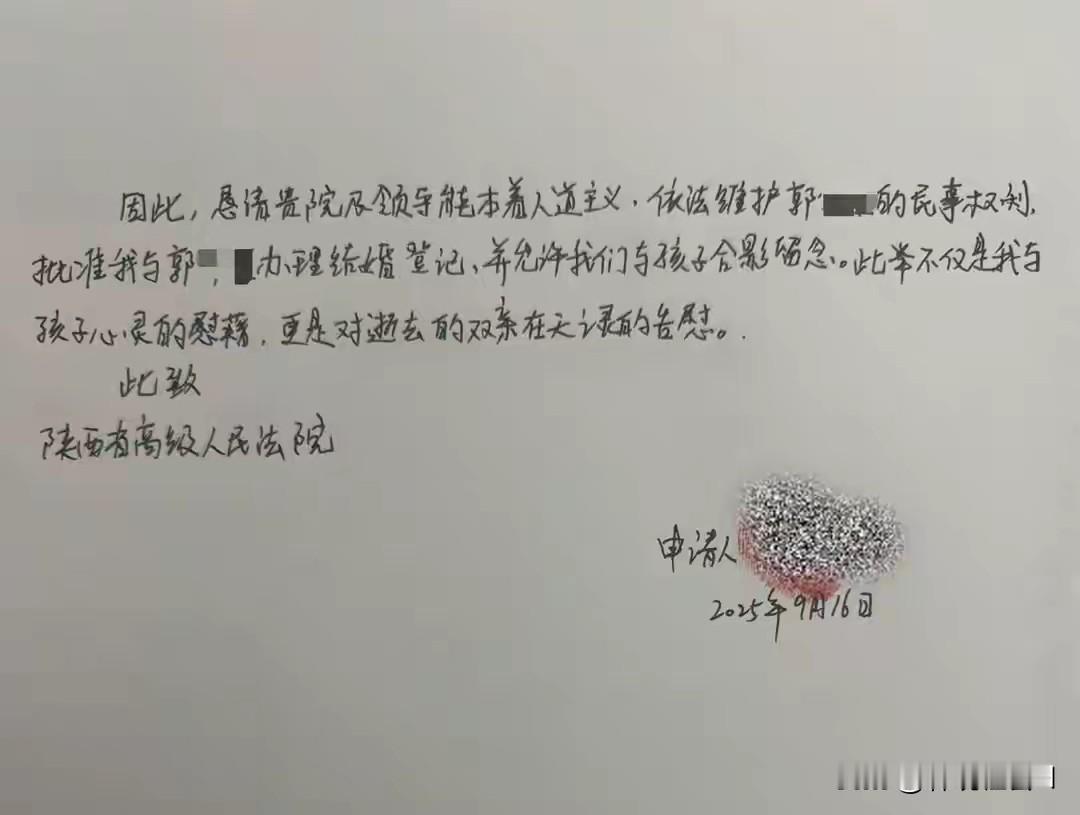 因此，恳请贵院及领导能本着人道主义，依法维护郭的民事权利，
批准我与郭，办理结婚登记、并允许我们与孩子合影留念。此举不仅是我与
孩子心灵的慰藉，更是对逝去的双亲在天之灵的告慰。.
此致
陕西省高级人民法院
申请人
2025年9月16日